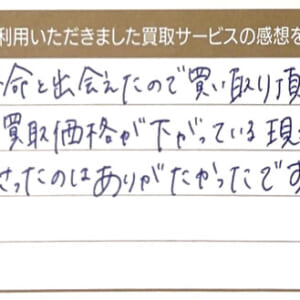 利用いただきました買取サービスの感想を
命と出会えたので買い取り頂
買取価格が下がっている現
さったのはありがたかったです